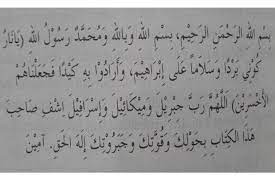 بِسْمِ اللهِ الرَّحْمَنِ الرَّحِيْمِ، بِسْمِ اللهِ وَبِاللهِ وَمُحَمَّدٌ رَسُوْلُ اللهِ (يَانَارُ
كُوْنِي بَرْدًا وَسَلَامًا عَلَى إِبْرَاهِيْمَ، وَأَرَادُوْا بِهِ كَيْدًا فَجَعَلْنَاهُمُ
الْأَخْسَرِيْنَ) اللَّهُمَّ رَبَّ جِبْرِيْلَ وَمِيْكَائِيْلَ وَإِسْرَافِيْلَ اِشْفِ صَاحِبَ
هَذَا الْكِتَابِ بِحَوْلِكَ وَقُوَّتِكَ وَجَبَرُوْتِكَ إِلَهَ الْحَقِّ. آمِيْنَ